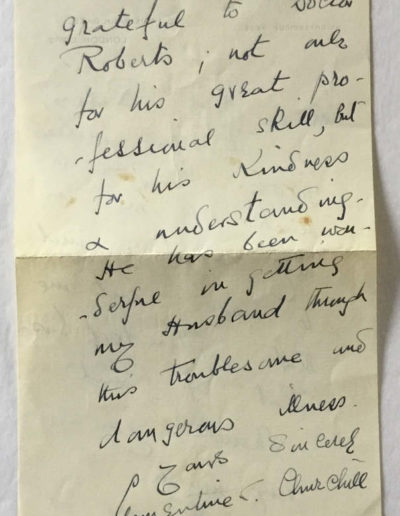 grateful to Doctor
Roberts; not only
for his great pro-
-fessional skill, but
for his Kindness
& understanding.
He has been won-
-derful in getting
my Husband through
this troublesome and
dangerous illness.
Yours Sincerely
Clementine S. Churchill